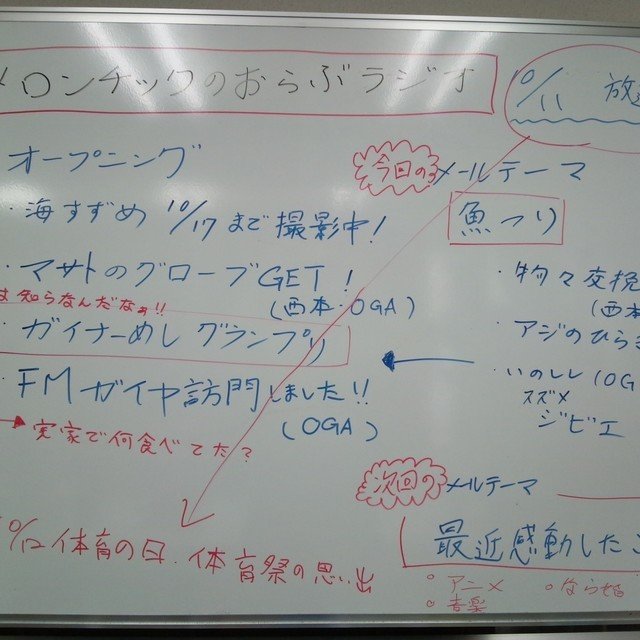 メロンチックのおらぶラジオ
10/11 放送
オープニング
・海すずめ 10/17 まで撮影中!
・マサトのグローブGET!
(西本・OGA)
は知らなんだなぁ!!
ガイナーめし グランプリ
・FMガイヤ訪問しました!!
(OGA)
→実家で何食べてた?
10/12 体育の日・体育祭の思い出
今回の メールテーマ
魚つり
・物々交換
(西本
・アジのひら
・いのしし(OG
スズメ
ジビエ
次回の メールテーマ
最近感動したこ
○アニメ
○音楽